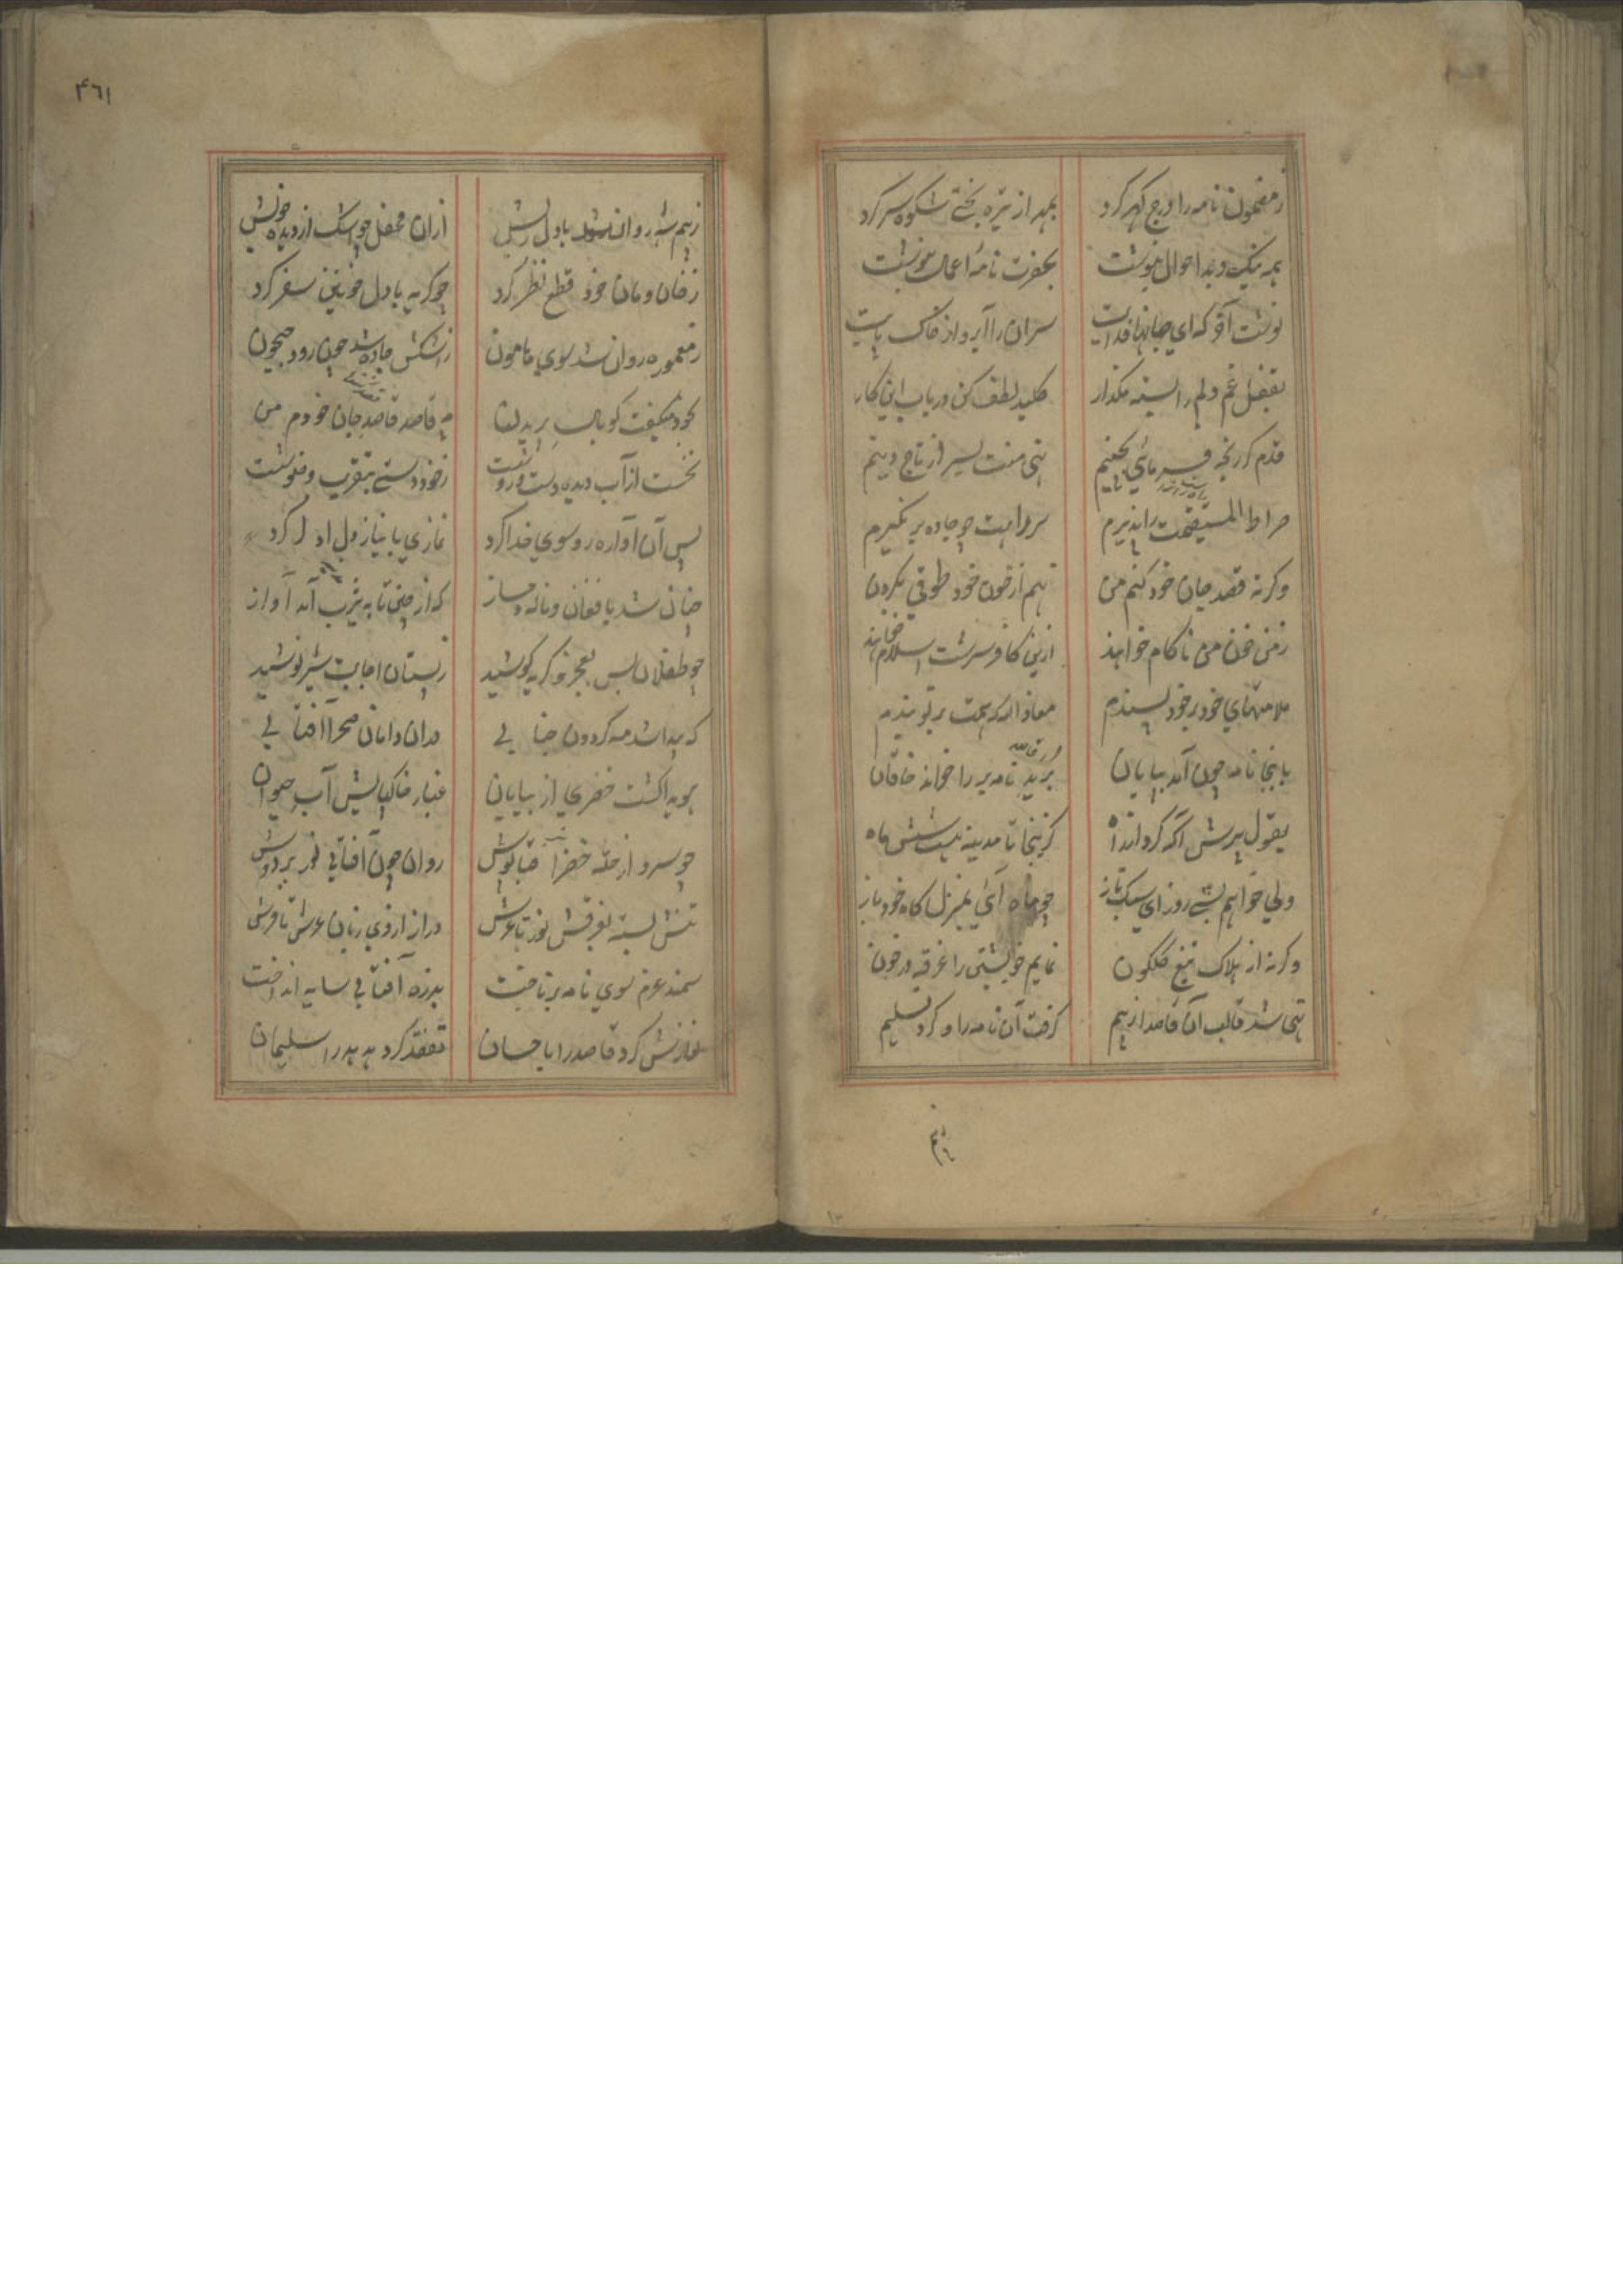 ز مضمون نامه را درج گهر کرد بمهر از تیره بختی شکوه سر کرد
همه نیک و بد احوال بنوشت بحضرت نامهٔ اعمال بنوشت
نوشت آخر که ای جانها فدایت سران را آبرو از خاک پایت
بقفل غم دلم را بسته مگذار کلید لطف کن در باب این کار
قدم گر رنجه فرمائی بچینم نهی منت بسر از تاج و
صراط المستقیمت را پذیرم سر راهت چو جاده بر نگیرم
وگرنه قصد جان خود کنم من نهم از خون خود طوقی بگردن
ز من خون من ناکام خواهند ازین کافر سرشت اسلام خواهند
ملامتهای خود بر خود پسندم معاذ الله که تهمت بر تو بندم
باینجا نامه چون آمد بپایان برید نامه بر را خواند خاقان
بقول پیرش آگه کرد از راه کزینجا تا مدینه هست شش ماه
ولی خواهم بشش روز ای سبک تاز چو ماه آئی بمنزل گاه خود باز
وگرنه از هلاک تیغ گلگون نمایم خویشتن را غرقه در خون
تهی شد قالب آن قاصد از بیم گرفت آن نامه را و کرد تسلیم
۴٦١
ز بیم شه روان شد با دل ریش ازان محفل چو اشک از دیده خویش
ز خان و مان خود قطع نظر کرد چو گریه با دل خونین سفر کرد
ز معموره روان شد سوی هامون ز اشکش جاده شد چون رود جیحون
بخود میگفت کو بال پریدن نه قاصد قاصد جان خودم من
نخست از آب دیده دست و رو شست ز خود دستی بتقریب وضو شست
پس آن آواره رو سوی خدا کرد نمازی با نیاز دل ادا کرد
چنان شد با فغان و ناله دمساز که از چین تا به یثرب آمد آواز
چو طفلان بس بعجز و گریه کوشید ز پستان اجابت شیر نوشید
که پیدا شد مه گردون جنابی دران دامان صحرا آفتابی
هویدا گشت خضری از بیابان غبار خاکپایش آب حیوان
چو سرو از حله خضرا قباپوش روان چون آفتابی نور بر دوش
تنش بسته بفرقش نور تا عرش دراز از وی زبان عرش تا فرش
سمند عزم سوی نامه بر تاخت بذره آفتابی سایه انداخت
نوازش کرد قاصد را باحسان تفقد کرد هدهد را سلیمان